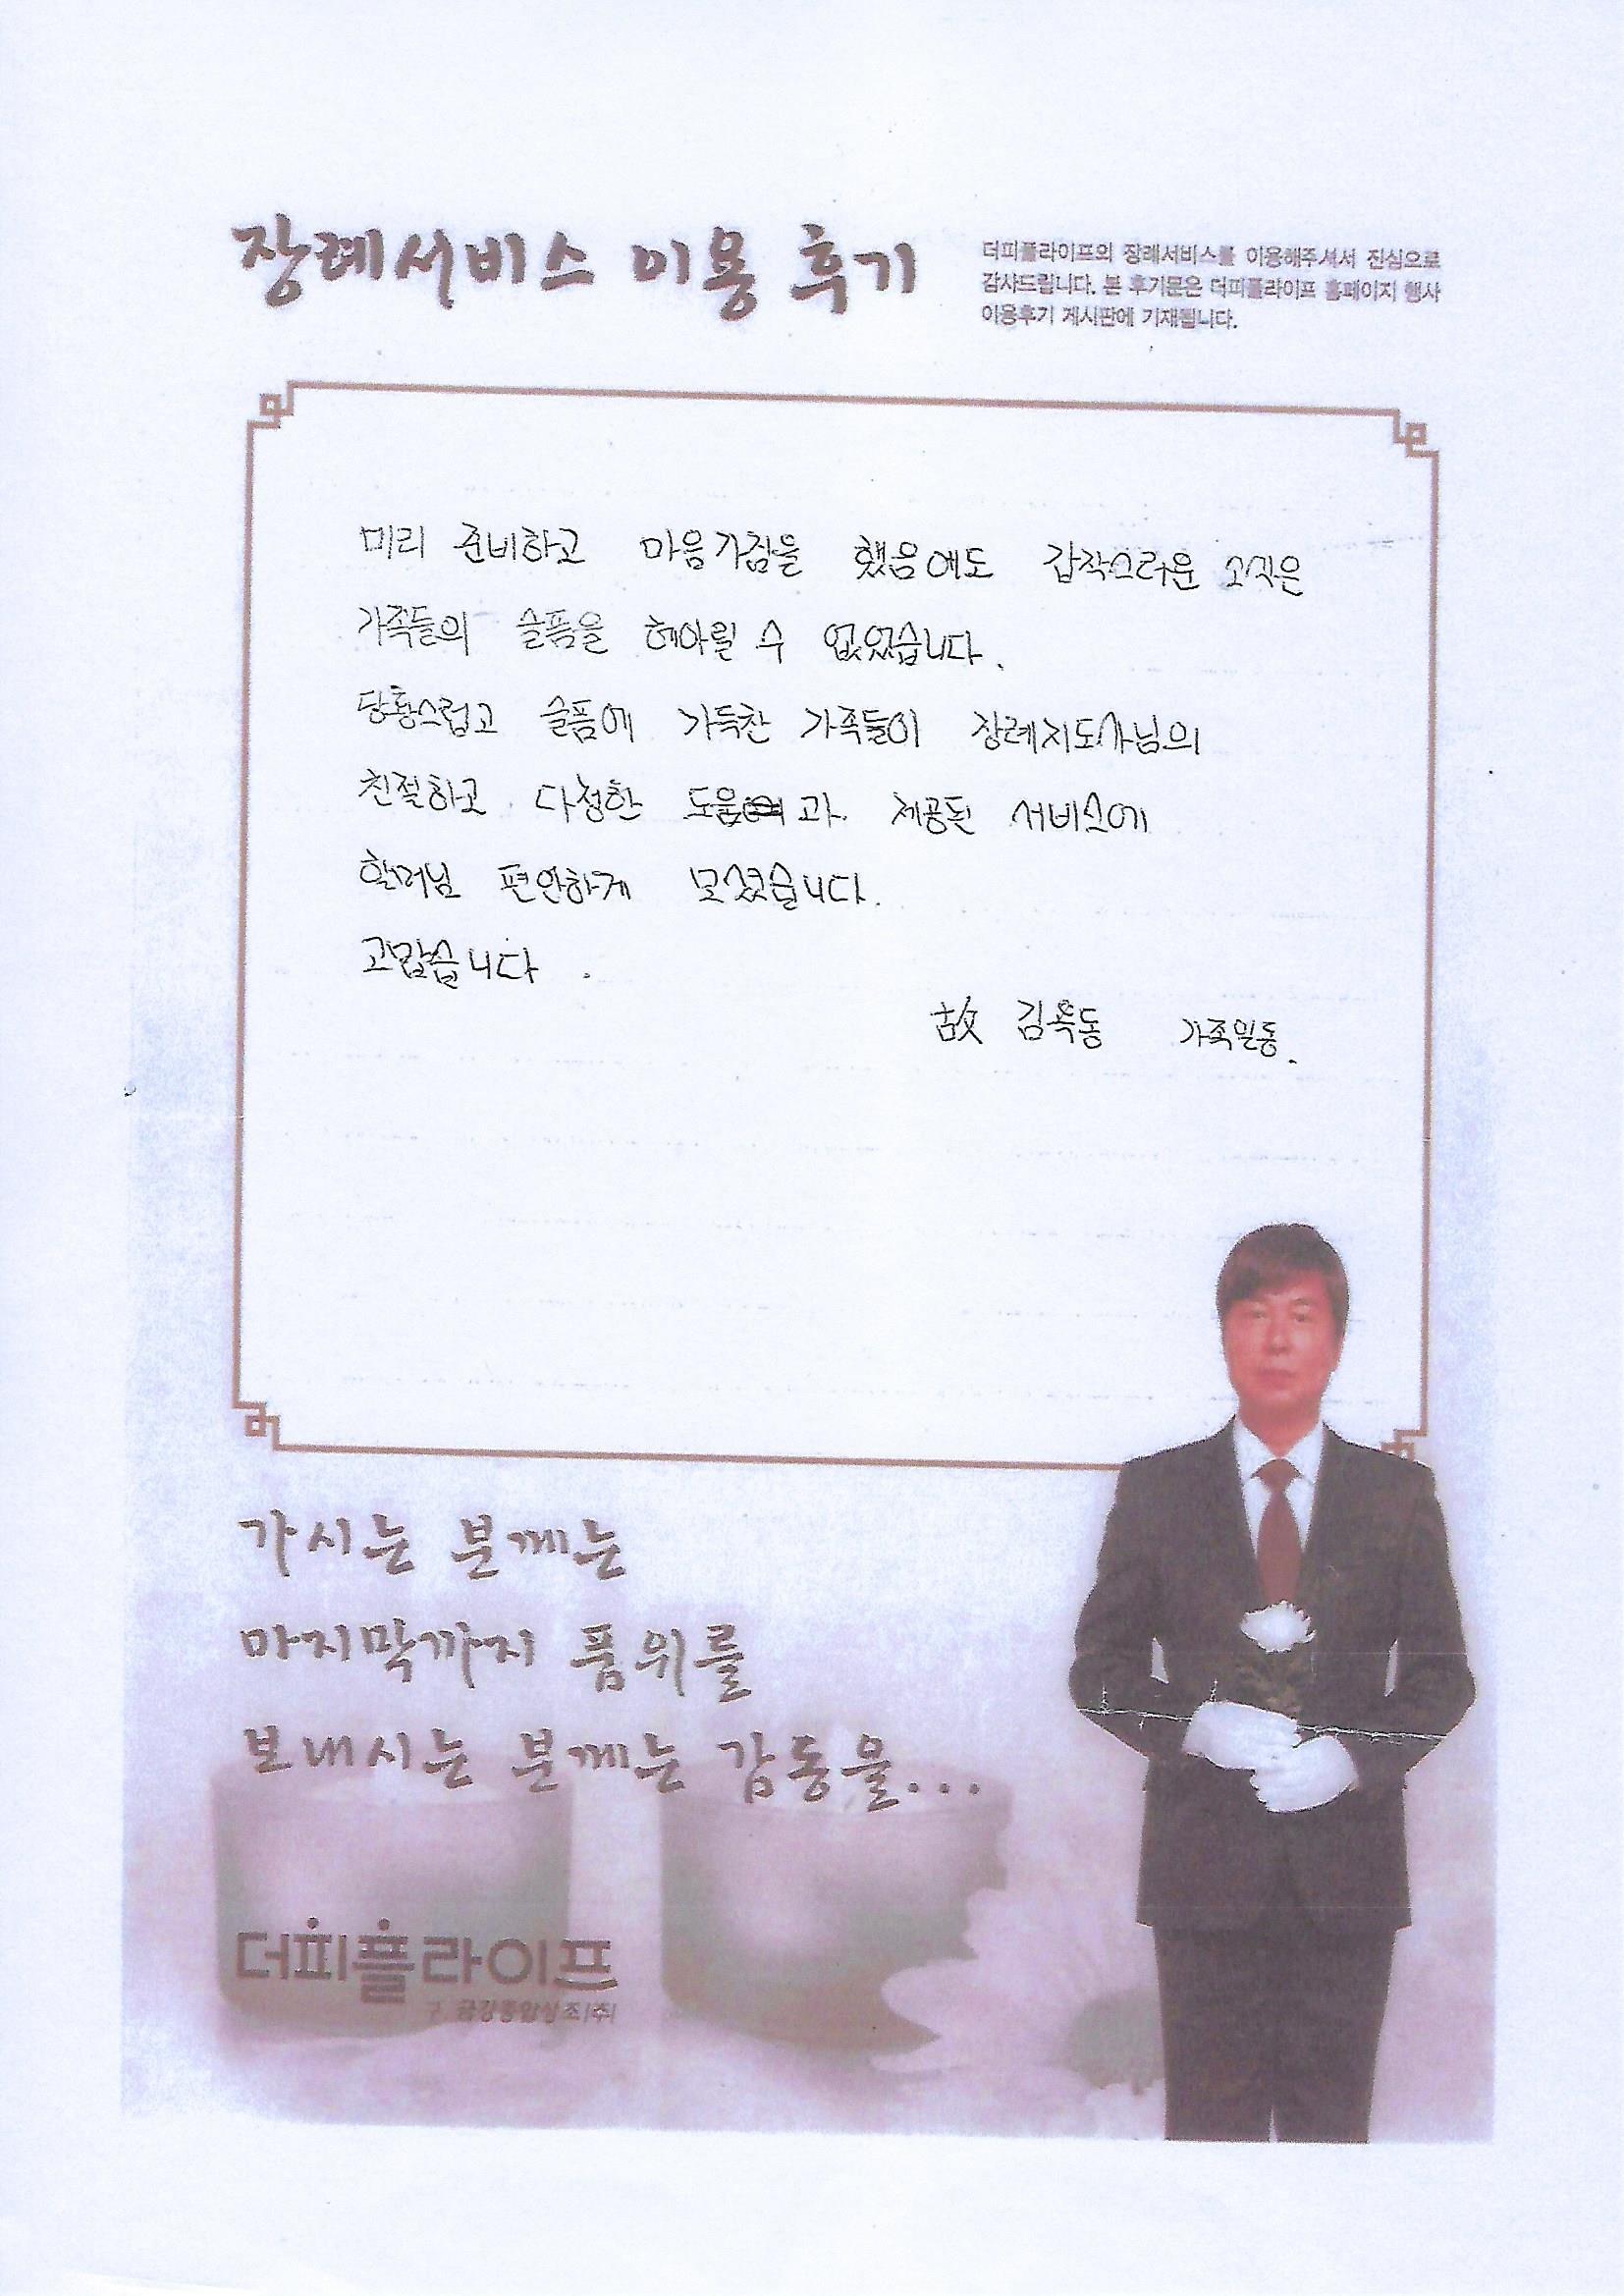 장례서비스 이용 후기
더피플라이프의 장례서비스를 이용해주셔서 진심으로
감사드립니다. 본 후기문은 더피플라이프 홈페이지 행사
이용후기 게시판에 기재됩니다.
미리 준비하고 마음가짐을 했음에도 갑작스러운 소식은
가족들의 슬픔을 헤아릴 수 없었습니다.
당황스럽고 슬픔에 가득찬 가족들이 장례지도사님의
친절하고 다정한 도움과 제공된 서비스에
할머님 편안하게 모셨습니다.
고맙습니다.
故 김옥동 가족일동.
가시는 분께는
마지막까지 품위를
보내시는 분께는 감동을...
더피플라이프
구 금강종합상조(주)